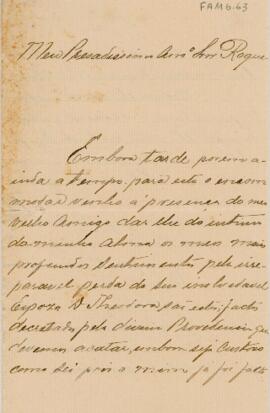 FAM6.63
Meu Presadissimo Amº Snr Roque
Embora tarde porem a-
inda a tempo para este o encom
modar venho a presença do meu
velho Amigo dar lhe do intimo
da minha Alma os meus mais
profundos Sentimentos pela irre-
paravel perda da sua inolvidavel
Espoza D. Theodora, são estes factos
decretados pela divina Providencia que
devemos acatar, embora seja custozo
como sei pois a mim já foi